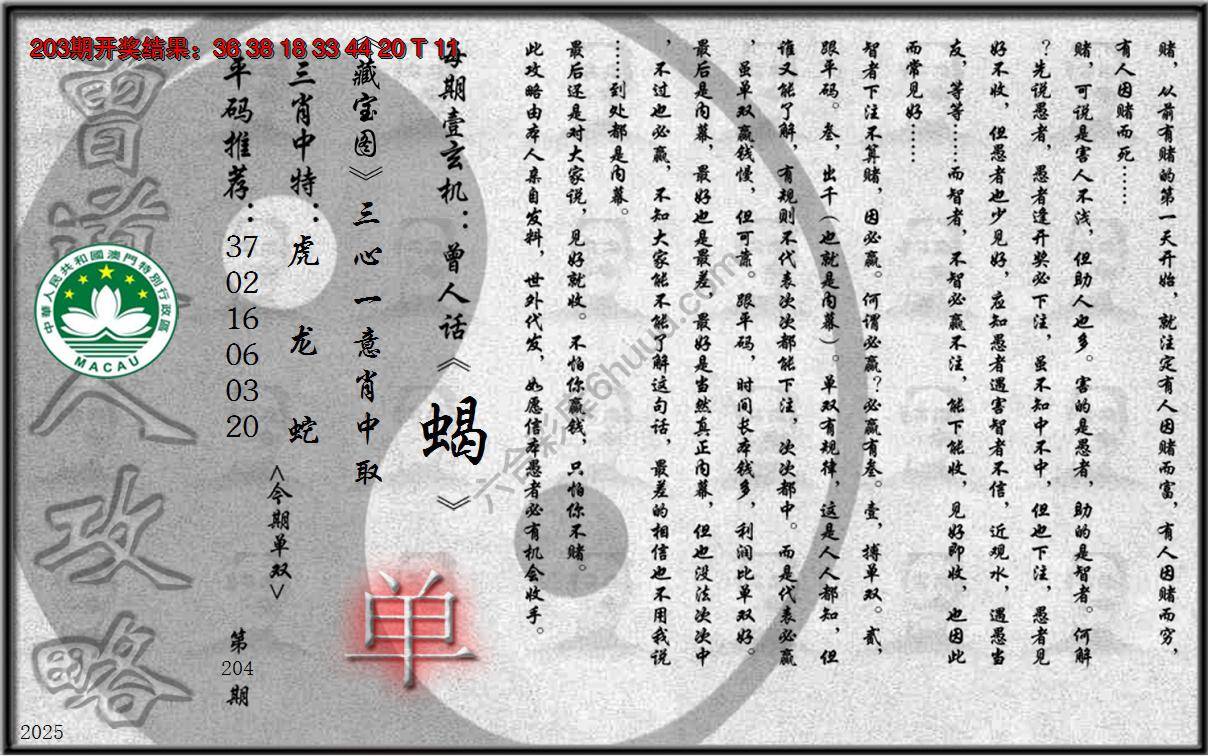 203期开奖结果：36 38 18 33 44 20 T 11
赌，从前有赌的第一天开始，就注定有人因赌而富，有人因赌而穷，
有人因赌而死……
赌，可说是害人不浅，但助人也多。害的是愚者，助的是智者。何解
？先说愚者，愚者逢开奖必下注，虽不知中不中，但也下注，愚者见
好不收，但愚者也少见好，应知愚者遇害智者不信，近观水，遇愚当
友，等等……而智者，不智必赢不注，能下能收，见好即收，也因此
而常见好……
智者下注不算赌，因必赢。何谓必赢？必赢有叁。壹，搏单双。贰，
跟平码。叁，出千（也就是内幕）。单双有规律，这是人人都知，但
谁又能了解，有规则不代表次次都能下注，次次都中。而是代表必赢
，虽单双赢钱慢，但可靠。跟平码，时间长本钱多，利润比单双好。
最后是内幕，最好也是最差，最好是当然真正内幕，但也没法次次中
，不过也必赢，不知大家能不能了解这句话，最差的相信也不用我说
……到处都是内幕。
最后还是对大家说，见好就收。不怕你赢钱，只怕你不赌。
此攻略由本人亲自发料，世外代发，如愿信本愚者必有机会收手。
每期壹玄机：曾人话《蝎》
《藏宝图》三心一意肖中取
三肖中特：虎 龙 蛇
平码推荐：37 02 16 06 03 20
<今期单双>
单
第204期
曾道人攻略
中華人民共和國澳門特別行政區
MACAU
2025